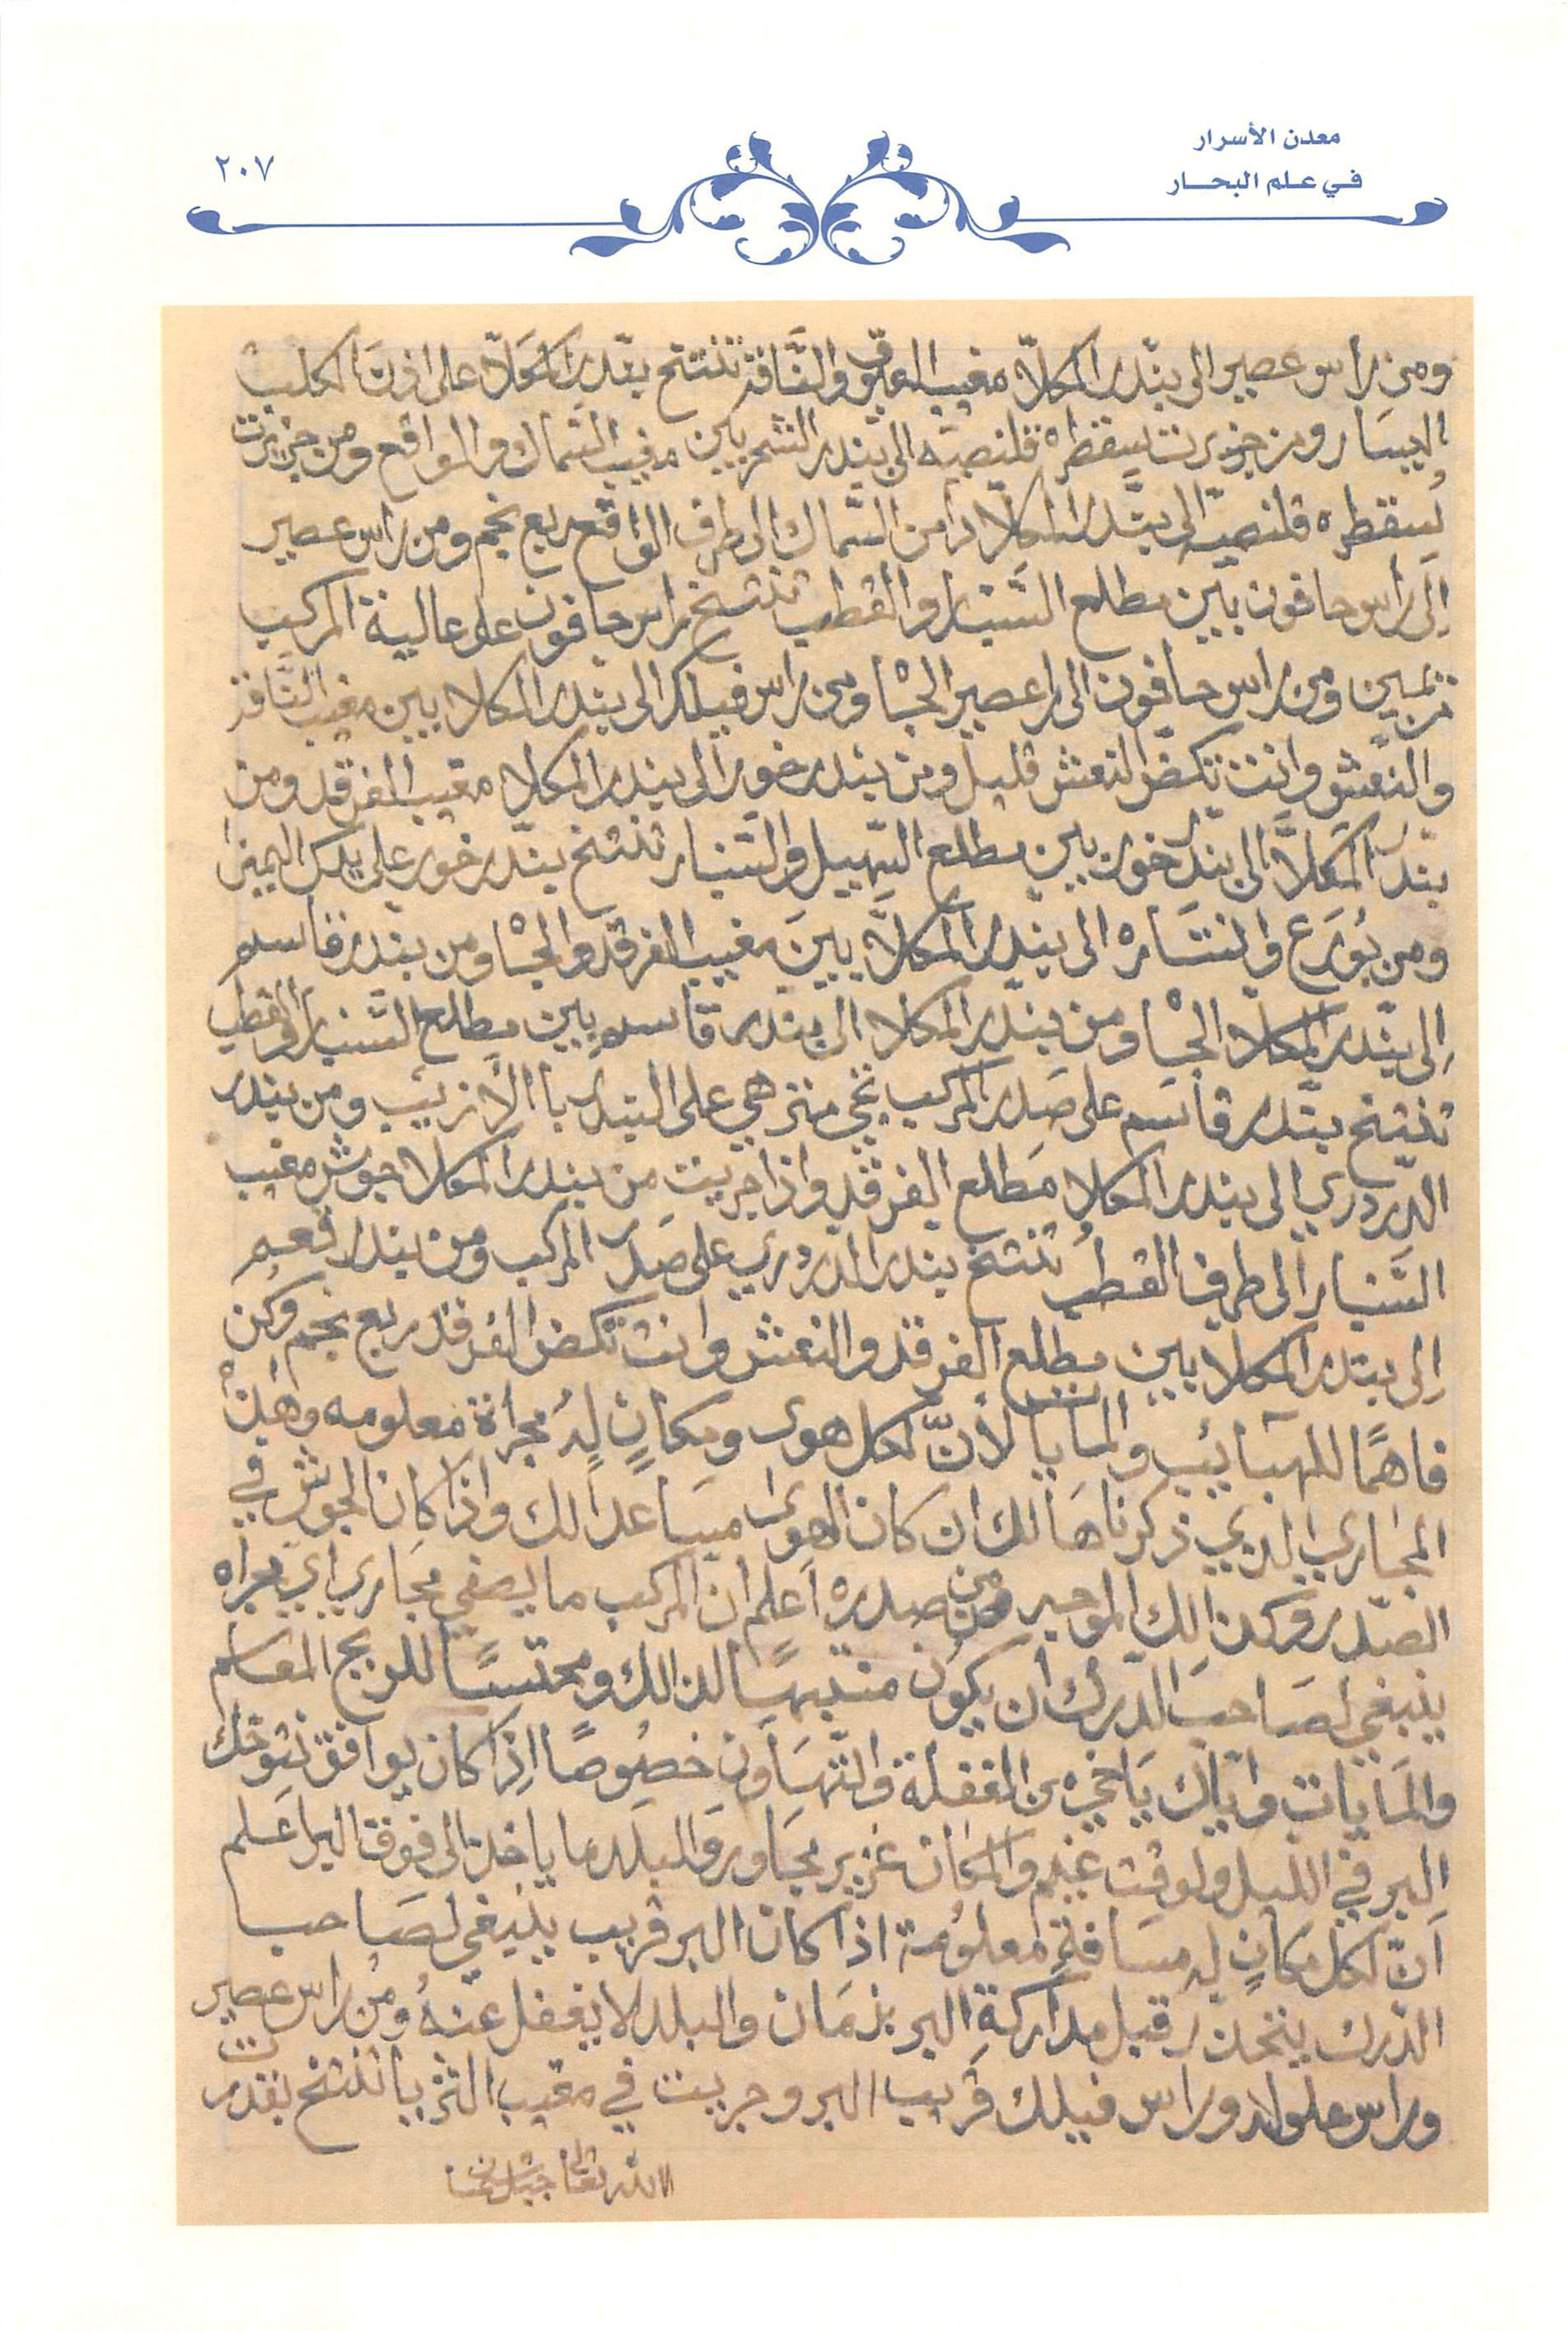 معدن الأسرار
في علم البحار
٢٠٧
ومن راس عصير الى بندر المكلاّ مغيب العيّوق والنّاقة تنتخ بندر المكلاّ على اذن الكلب
اليسار ومن جزيرت سقطره قلنصيه الى بندر الشحر بين مغيب السّماك والواقع ومن جزيرت
سقطره قلنصيه الى بندر المكلاّ من السّماك الى طرف الواقع ربع نجم ومن راس عصير
إلى راس حافون بين مطلع السّنبار والقطب تنتخ راس حافون على عالية المركب
من يمين ومن راس حافون الى را عصير الجْا ومن راس فيلك الى بندر المكلا بين مغيب النّاقة
والنّعش وانت تكض النعش قليل ومن بندر خور الى بندر المكلا مغيب الفرقد ومن
بندر المكلاَّ الى بندر خور بين مطلع السّهيل والسّنبار تنتخ بندر خور على يدك اليمين
ومن بُورَع والنتَاره الى بندر المكلاَّ بينَ مغيب الفرقد والجْا ومن بندر قاسم
إلى بندر المكلا الجْا ومن بندر المكلا الى بندر قاسم بين مطلع السّنبار والقطب
تنتخ بندر قاسم على صَدر المركب نجي منزهي على البندر با الأزيب ومن بندر
الدردري الى بندر المكلا مَطلع الفرقد واذا جريت من بندر المكلا جوش مغيب
السّنبار الى طرف القطب تنتخ بندر الدردري على صَدر المركب ومن بندر قعم
إلى بندر المكلا بين مطلع الفرقد والنعش وانت تكض الفرقد ربع نجم وكن
فاهمًا للهبائيب والمايا لأنّ لكل هوى ومكانٍ لهُ مجراة معلومه وهذه
المجاري الذي ذكرناهَا لك ان كان الهوى مساعداً لك واذا كان الجوش في
الصّدر وكذالك الموجه من صدره اعلم ان المركب ما يصفي مجاري اي مجراه
ينبغي لصَاحبَ الدّرك أن يكون منتبهاً لذالك ومحتسًا للريح المقاسم
والمَايات وايّاك يَاخي من الغفلة والتّهَاون خصُوصًا اِذا كان يوافق نتوخك
البر في الليل ولوقت غيم والمكان غزير مجَاور والبلد ما ياخذ الى فوقتاليها عَلم
اَنّ لكل مكانٍ له مسَافةٍ معلُومة اذا كان البر قريب ينبغي لصَاحب
الدّرك يتحذّر قبل مداركةِ البر بزمَان والبلد لا يغفل عنهُ ومن راس عصير
وراس علولا وراس فيلك قريب البر وجريت في مغيب الثريا تنتخ بقدرت
الله تعالى